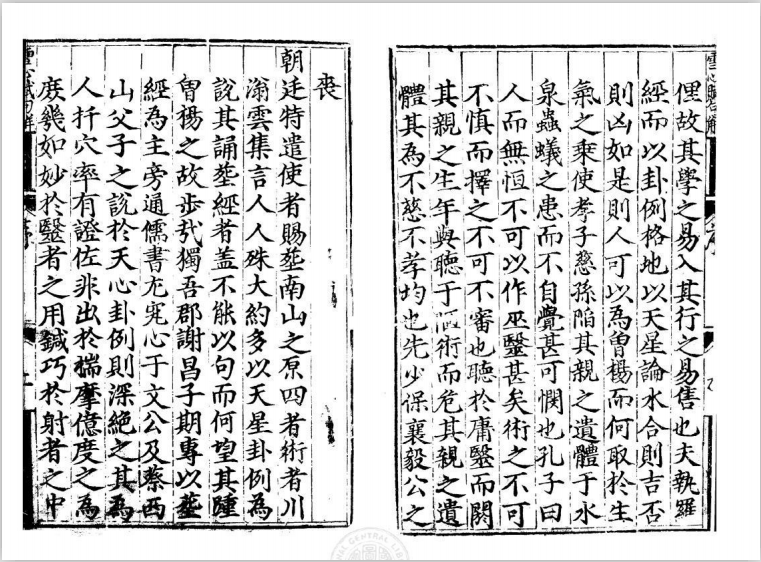 俚故其學之易入其行之易售也夫執羅
經而以卦例格地以天星論水合則吉否
則凶如是則人可以為曾楊而何取於生
氣之乘使孝子慈孫陷其親之遺體于水
泉蟲蟻之患而不自覺甚可憫也孔子曰
人而無恒不可以作巫醫甚矣術之不可
不慎而擇之不可不審也聽於庸醫而關
其親之生年與聽于術而危其親之遺
體其為不慈不孝均也先少保襄毅公之
喪
朝廷特遣使者賜塟南山之原四者術者川
滃雲集言人人殊大約多以天星卦例為
說其誦塟經者盖不能以句而何望其踵
曾楊之故步㢤獨吾郡謝昌子期專以塟
經為主旁通儒書尤究心于文公及蔡西
山父子之說於天心卦例則深絶之其為
人扦穴率有證佐非出於揣摩億度之為
庻幾如妙於醫者之用鍼巧於射者之中